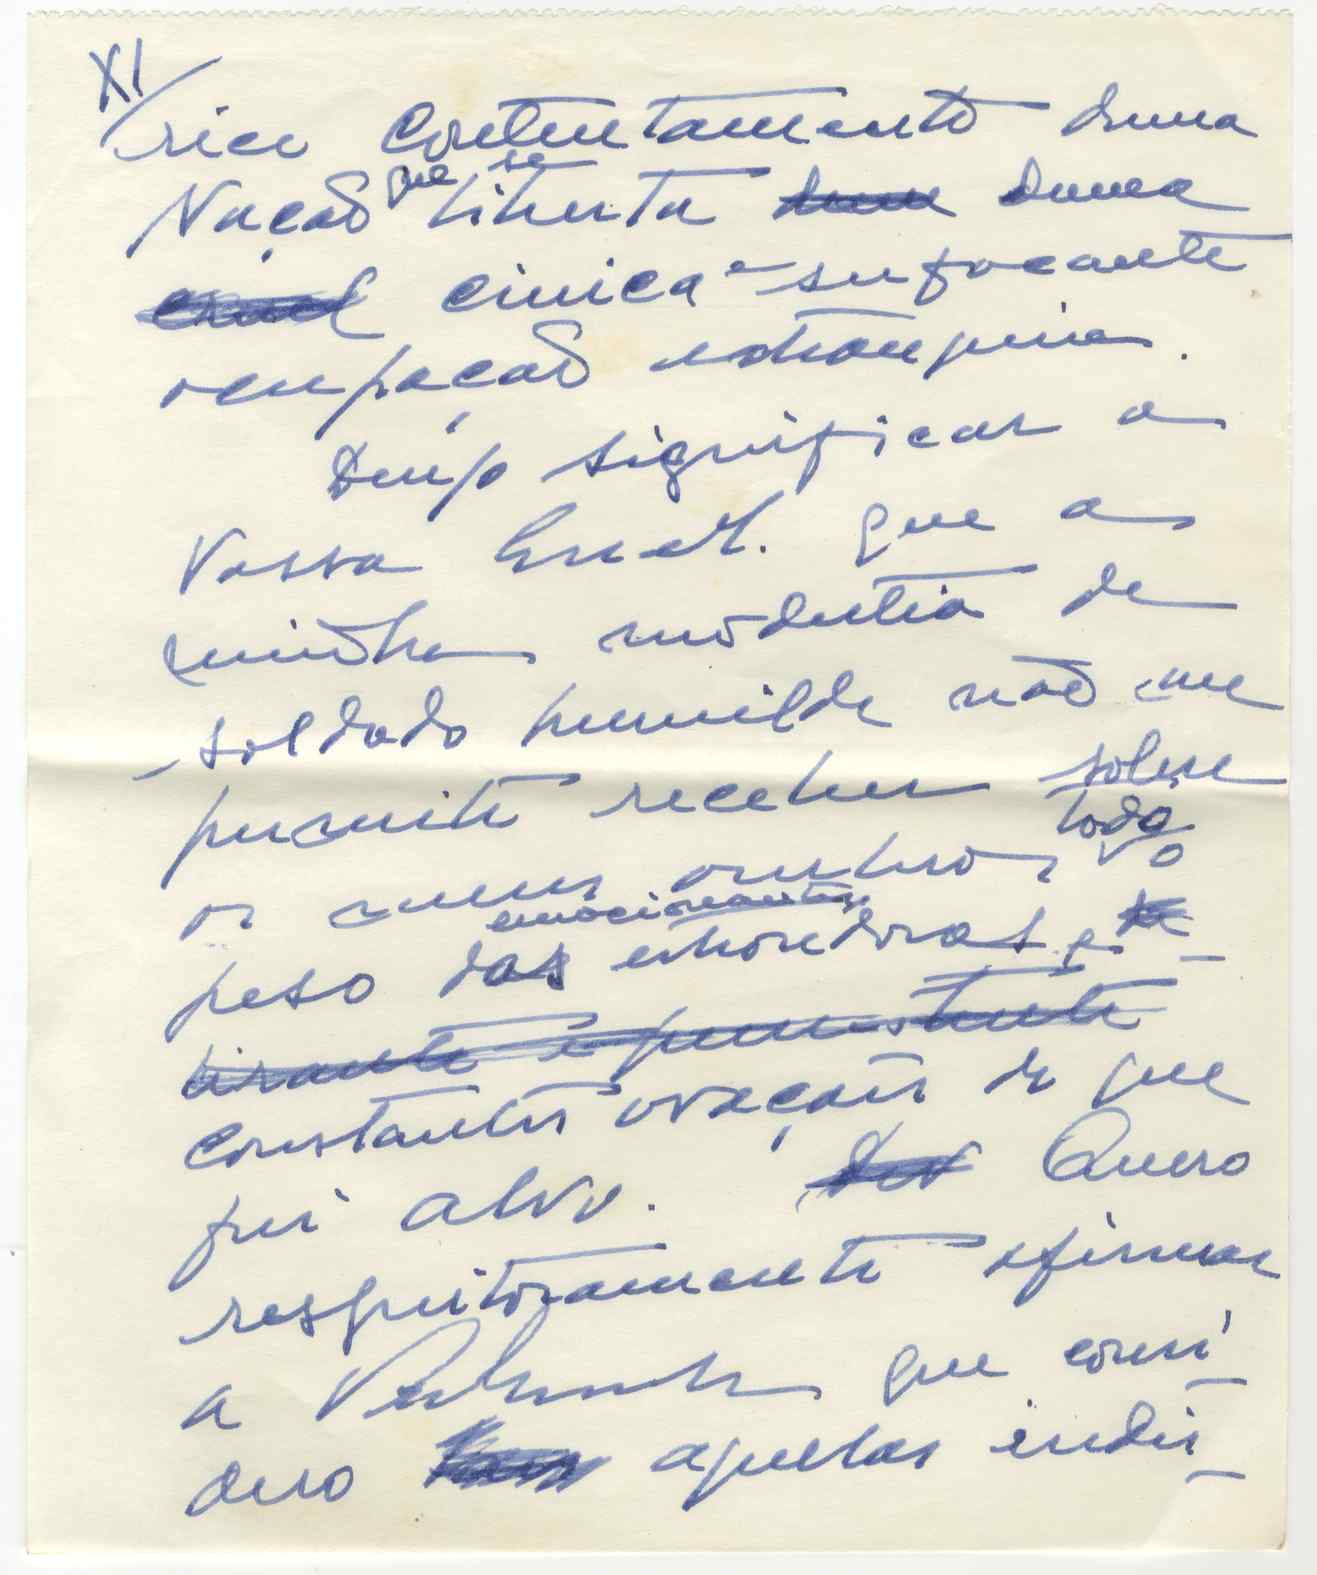 XI
rico contentamento duma
Nação que se liberta duma
cínica e sufocante
ocupação estrangeira.
Desejo significar a
Vossa que a
minha modéstia de
soldado humilde não me
permite receber sobre
os meus ombros, todo o
peso das emocionantes estrondosas, e
constantes ovações de que
fui alvo. Quero
respeitosamente afirmar
a que consi-
dero aquelas indis-